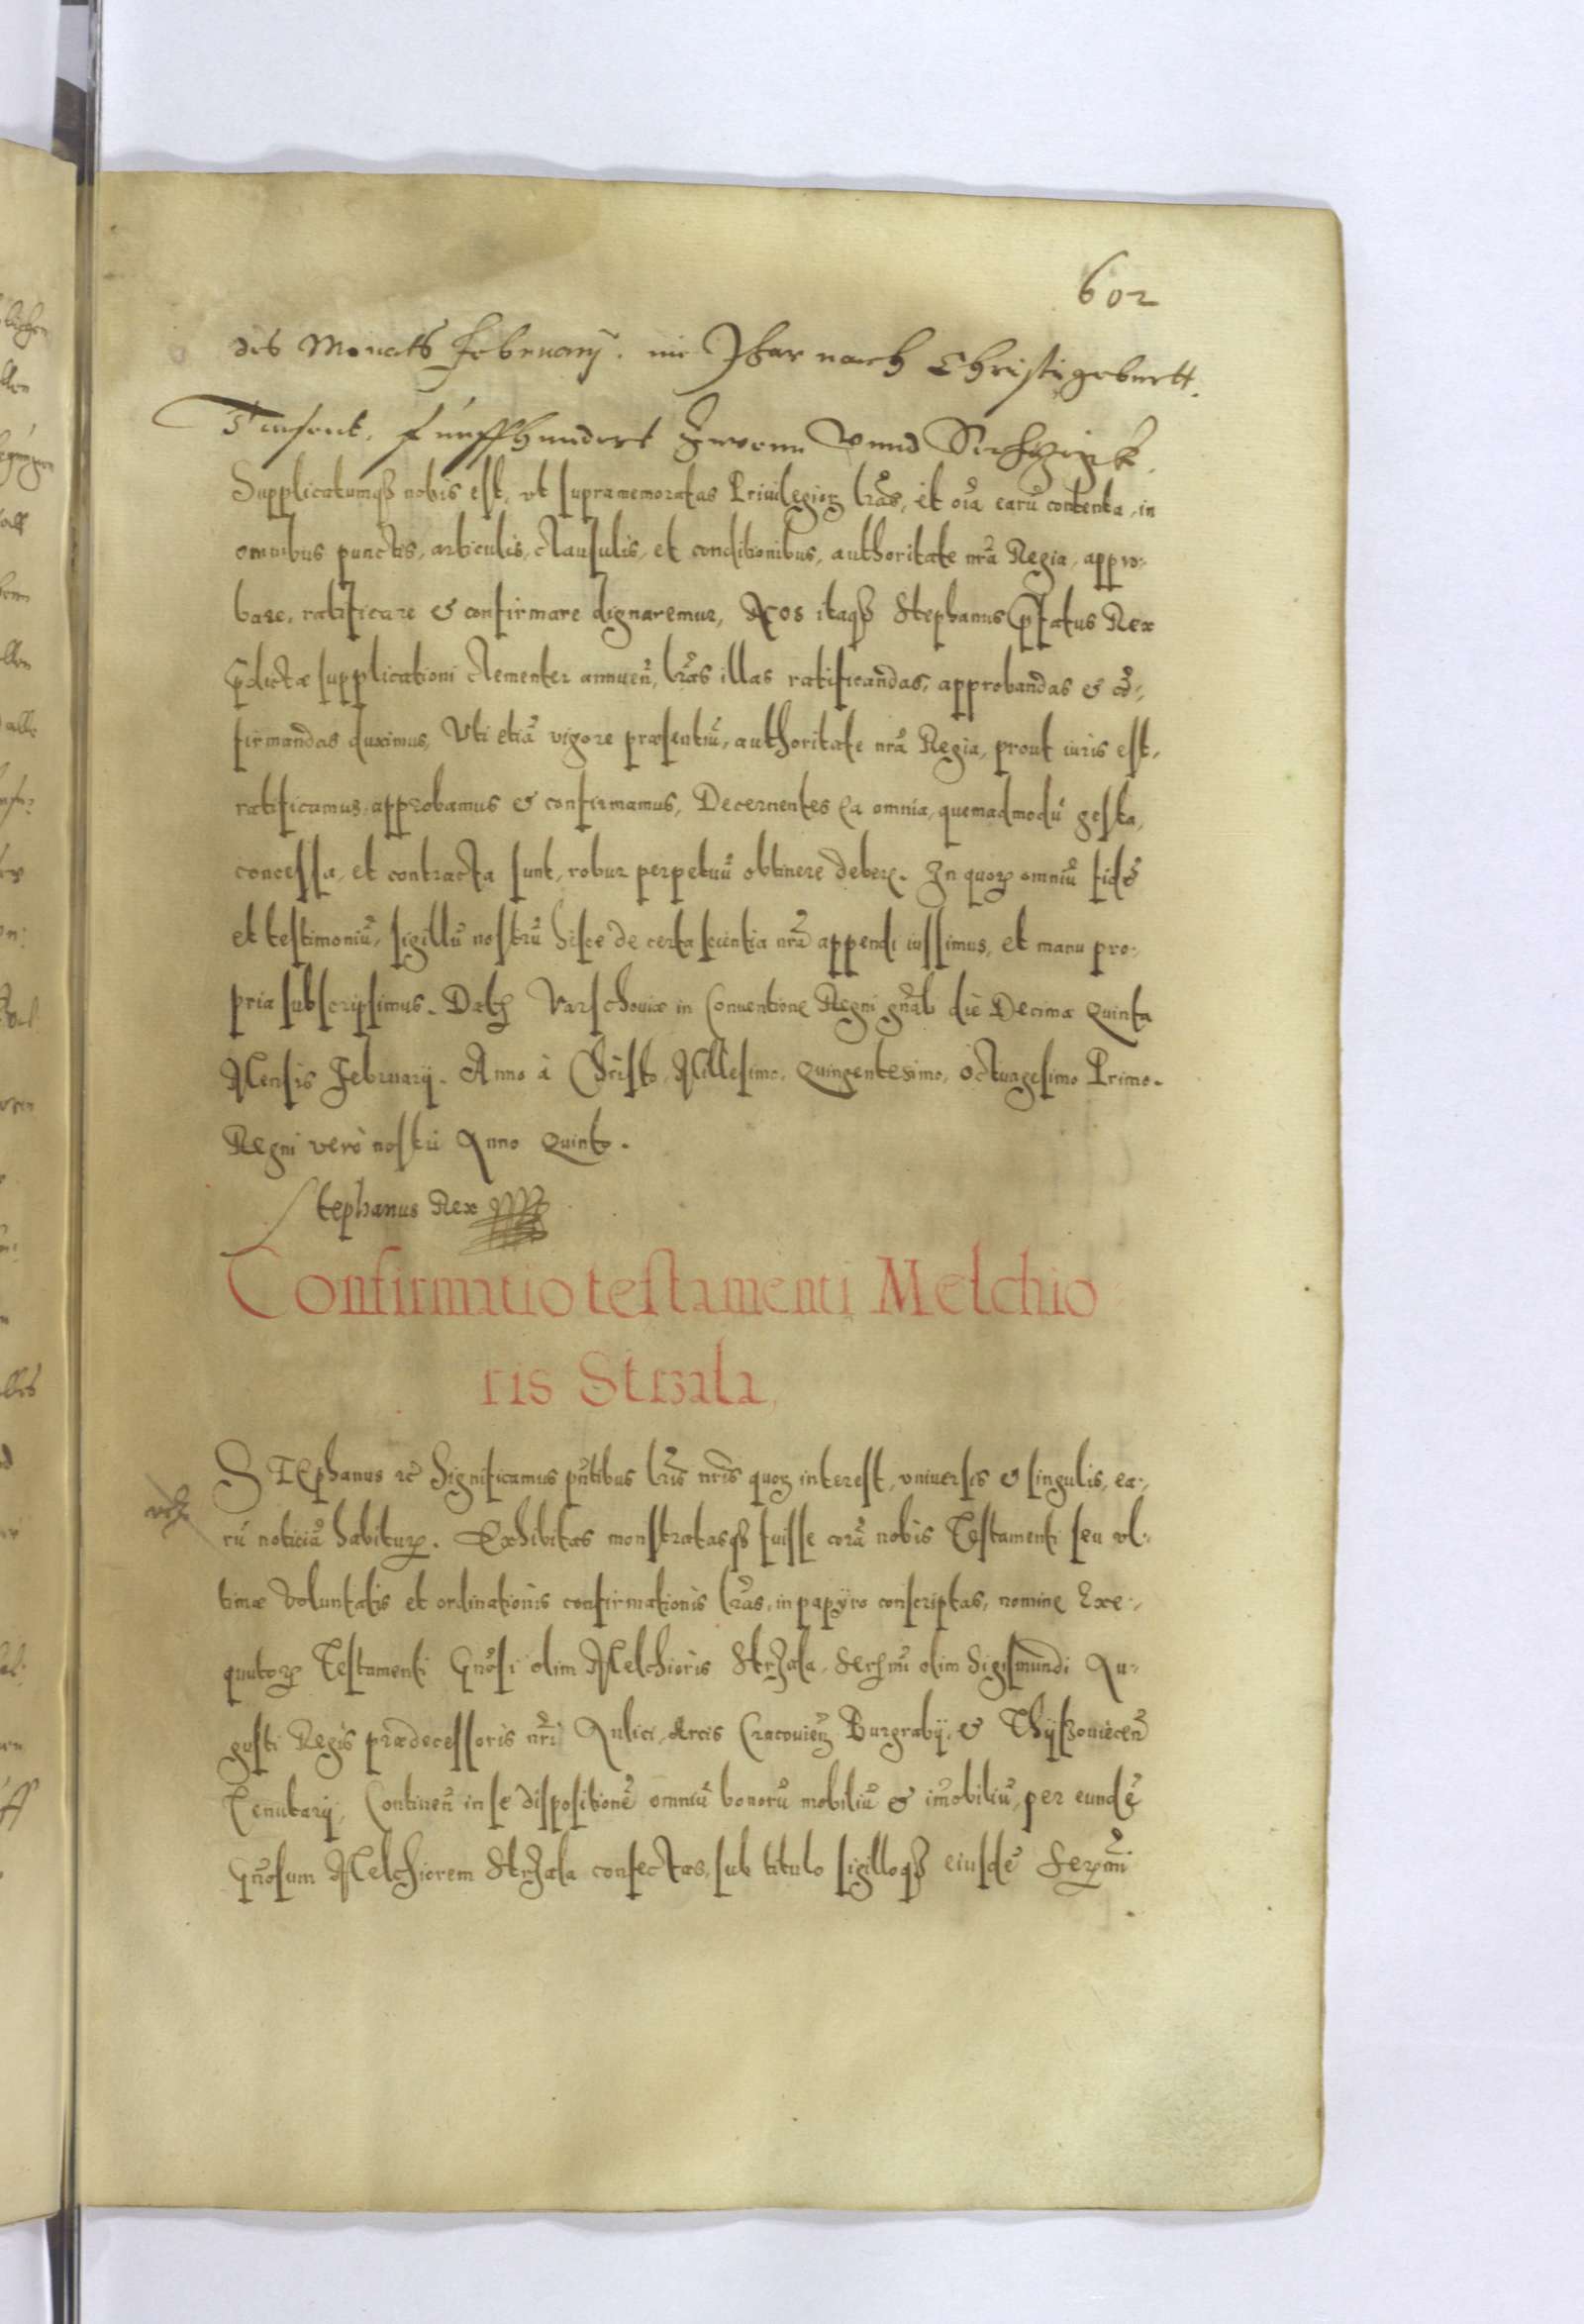 602
des Monats Februarij. im Jhar nach Christi geburtt.
Tausent, fünffhundert Zwenn vnnd Sechtzigk.
Supplicatumqꝫ nobis est, vt supramemoratas Priuilegioꝝ lr̃as, et oĩa earũ contenta, in
omnibus punctis, articulis, clausulis, et conditionibus, authoritate nr̃a Regia, appro:
bare, ratificare & confirmare dignaremur, Nos itaqꝫ Stephanus p̃fatus Rex
p̃dictæ supplicationi clementer annueñ, lr̃as illas ratificandas, approbandas & cõ:
firmandas duximus, Vti etiã vigore præsentiũ, authoritate nr̃a Regia, prout iuris est,
ratificamus, approbamus & confirmamus, Decernentes ea omnia, quemadmodũ gesta,
concessa, et contracta sunt, robur perpetuũ obtinere debere. In quoꝝ omniũ fidẽ
et testimoniũ, sigillũ nostrũ hisce de certa scientia nr̃a appendi iussimus, et manu pro:
pria subscripsimus. Datꝫ Varschouiæ in Conuentione Regni gñali die Decima Quinta
Mensis Februarij. Anno à Christo, Millesimo, Quingentesimo, Octuagesimo Primo.
Regni verò nostri Anno Quinto.
Stephanus Rex
Confirmatio testamenti Melchio
ris Strzala,
STEphanus ꝛc̃ Significamus pñtibus lr̃is nr̃is quoꝝ interest, vniuersis & singulis, ea:
rũ noticiã habituꝝ. Exhibitas monstratasqꝫ fuisse corã nobis Testamenti seu vl:
timæ voluntatis et ordinationis confirmationis lr̃as, in papyro conscriptas, nomine Exe:
quutoꝝ Testamenti Gñosi olim Melchioris Strzala, Serꝫmi olim Sigismundi Au:
gusti Regis prædecessoris nr̃i Aulici, Arcis Cracouieñ Burgrabij, & Thyszouiecen̄
Tenutarij, Contineñ in se dispositionẽ omniũ bonorũ mobiliũ & im̃obiliũ, per eundẽ
Gñosum Melchiorem Strzala confectas, sub titulo sigilloqꝫ eiusdẽ Serꝫmi